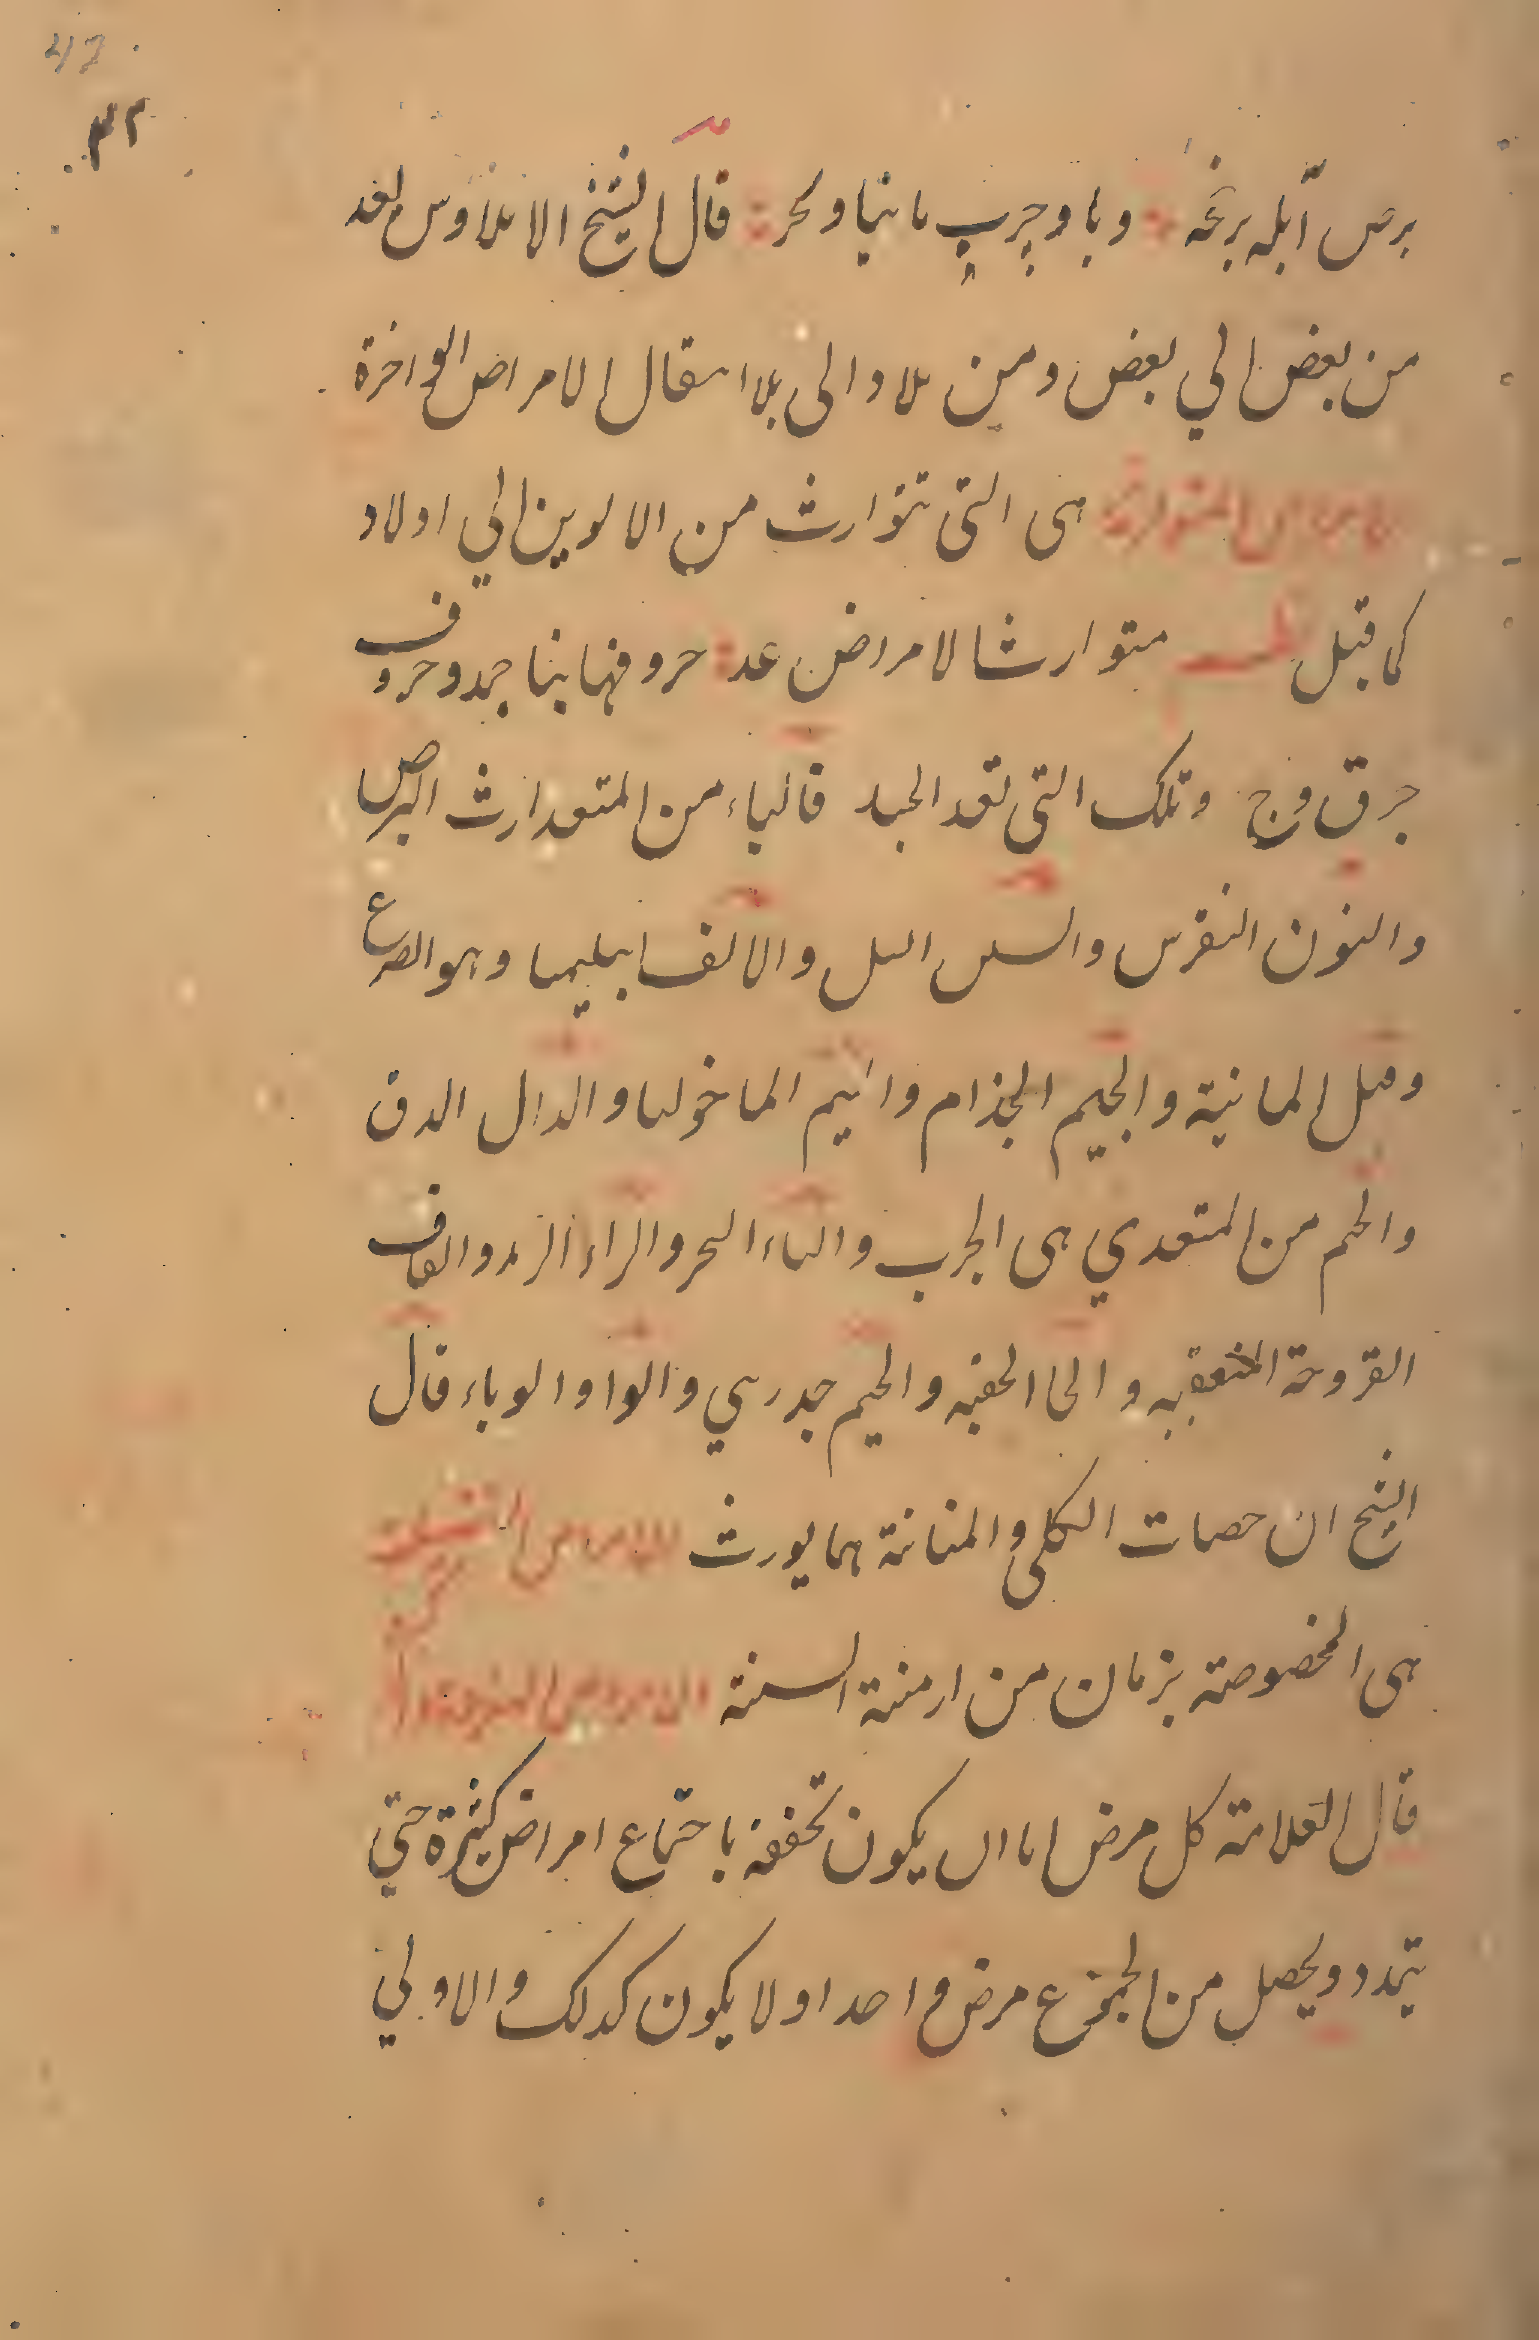 47
۳۲
برص آبله برغه وبا و جرب مانيا و بحر قال الشيخ الايلاوس يعد
من بعض الي بعض ومن بلاد الى بلا انتقال الامراض الوافرة
الامراض المتوارثة هى التى تتوارث من الابوين الي اولاد
كما قيل متوارثا لامراض عد حروفها بنا جمد وحروف
جرق وج وتلك التى تعد الجيد فالباء من المتعوارث البرص
والنون النقرس والسين السل والالف ابيليميا وهو الصرع
وقيل المانية والجيم الجذام والميم الماخوليا والدال الدق
والجيم من المتعدي هى الجرب والباء البحر والراء الرمد والقاف
القروحة المتعفنه والحا الحقبه والجيم جدري والواو الوباء قال
الشيخ ان حصات الكلى والمثانة مما يورث الامراض
هى المخصوصة بزمان من ازمنة السنة الامراض المفردة
قال العلامة كل مرض اما ان يكون تحققه باجتماع امراض كثيرة حتى
يتحد ويحصل من المجموع مرض واحد او لا يكون كذلك والاولي